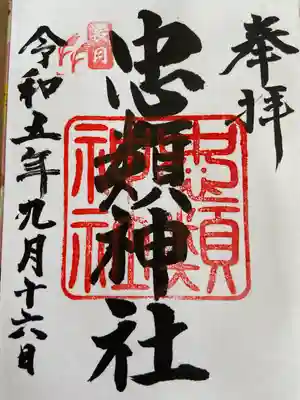 奉拝
忠類神社
忠類
神社
長月
令和五年九月十六日